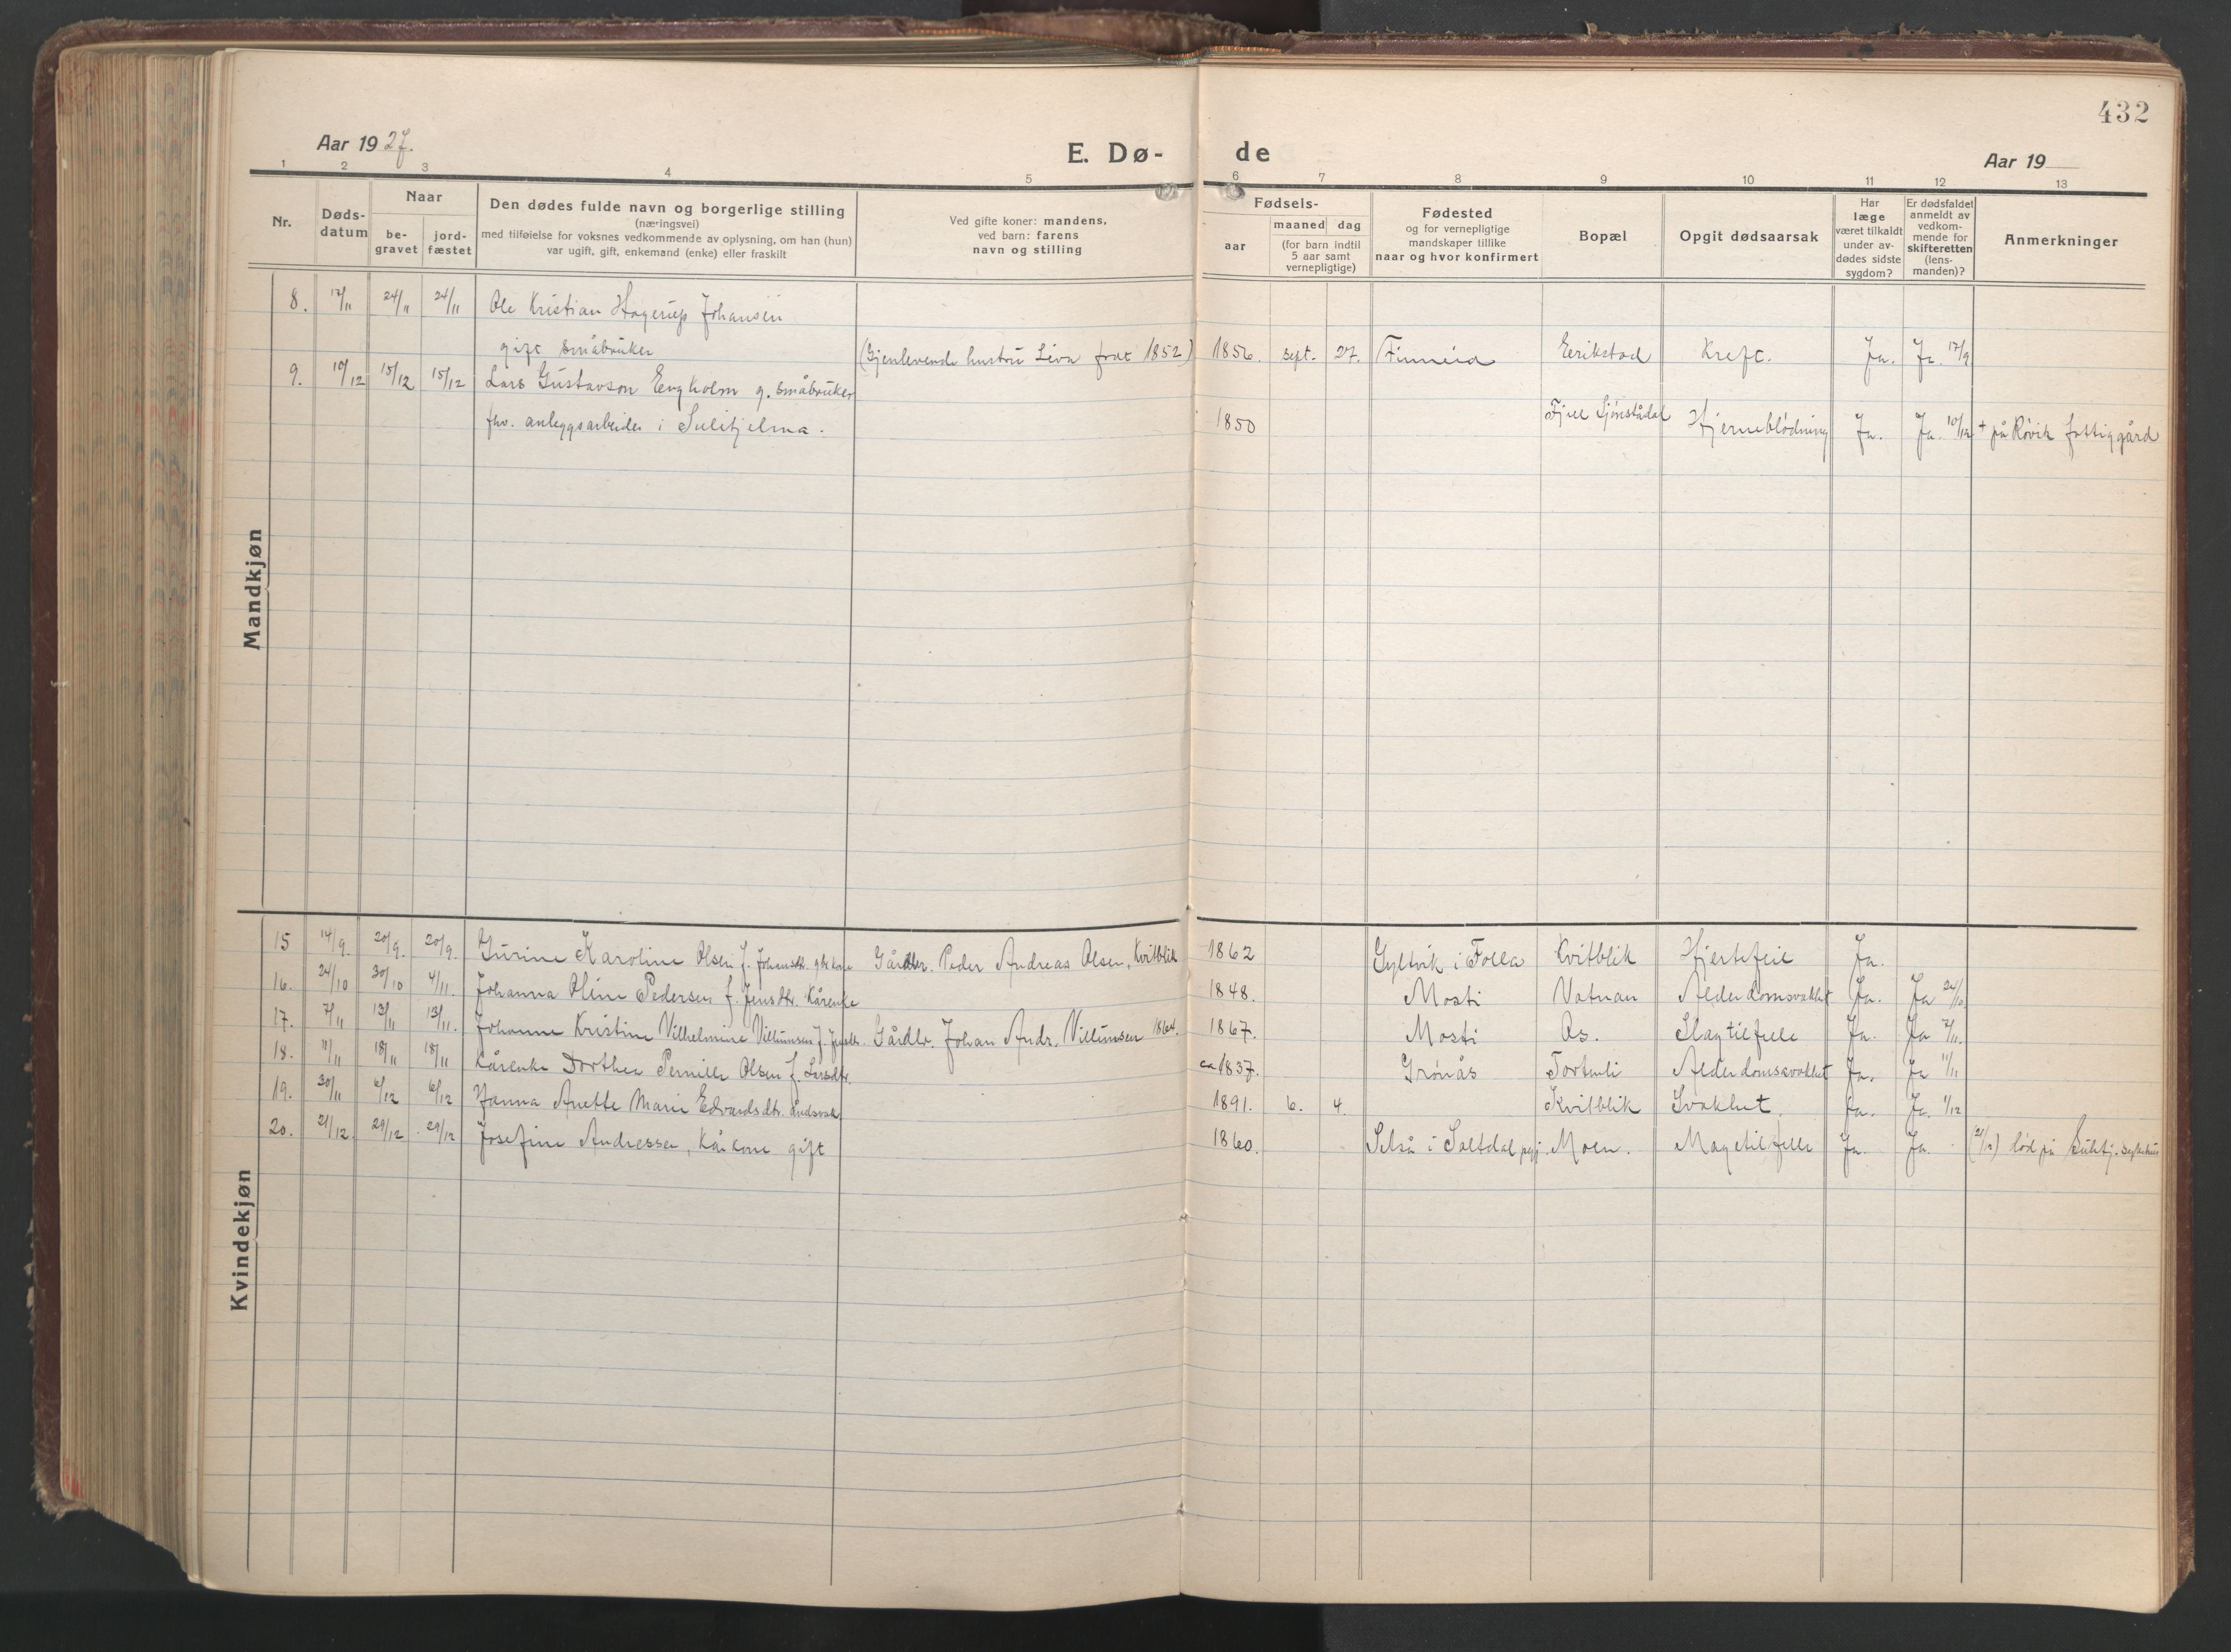 432
Aar 1927.
E. Dø-
de
Aar 19
1 2 3 4 5 6 7 8 9 10 11 12 13
Nr.
Døds-
datum
Naar
be-
gravet
jord-
fæstet
Den dødes fulde navn og borgerlige stilling
(næringsvei)
med tilføielse for voksnes vedkommende av oplysning, om han (hun)
var ugift, gift, enkemand (enke) eller fraskilt
Ved gifte koner: mandens,
ved barn: farens
navn og stilling
Fødsels-
aar
maaned dag
(for barn indtil
5 aar samt
vernepligtige)
Fødested
og for vernepligtige
mandskaper tillike
naar og hvor konfirmert
Bopæl
Opgit dødsaarsak
Har
læge
været tilkaldt
under av-
dødes sidste
sygdom?
Er dødsfaldet
anmeldt av
vedkom-
mende for
skifteretten
(lens-
manden)?
Anmerkninger
Mandkjøn
8. 17/11 24/11 24/11 Ole Kristian Hagerup Johansen
gift småbruker (Gjenlevende hustru Liva født 1852) 1856. sept. 27. Finneid Eerikstad Kreft. Ja. Ja. 17/9
9. 10/12 15/12 15/12 Lars Gustavson Engholm g. småbruker
fhv. anleggsarbeider i Sulitjelma. 1850 Fjell Sjønstådal Hjerneblødning Ja. Ja. 10/12 + på Røvik fattiggård
Kvindekjøn
15 14/9. 20/9. 20/9. Gurine Karoline Olsen f. Johansdtr. gbr kone Gårdbr. Peder Andreas Olsen, Kvitblik 1862 Gyltvik i Folla Kvitblik Hjertefeil Ja.
16. 24/10 30/10 4/11. Johanna Oline Pedersen f. Jensdtr. Kårenke 1848. Mosti Vatnan Alderdomssvakhet Ja. Ja 24/10
17. 7/11 13/11 13/11. Johanne Kristine Vilhelmine Villumsen f. Jensdtr. Gårdbr. Johan Andr. Villumsen 1864. 1867. Mosti Os. Slagtilfelle Ja. Ja 7/11.
18. 11/11 18/11 18/11 Kårenke Dorthea Pernille Olsen f. Larsdtr. ca 1837. Grønås Tortenli Alderdomssvakhet Ja. Ja 11/11
19. 30/11 6/12 6/12 Hanna Anette Marie Edvardsdtr. åndsvak 1891. 6. 4. Kvitblik Svakhet. Ja. Ja. 1/12
20. 21/12. 29/12 29/12 Josefine Andressen, Kårkone gift 1860. Selså i Saltdal pgj. Moen. Magetilfelle Ja. Ja. (21/12) død på Sulitj. sykehus